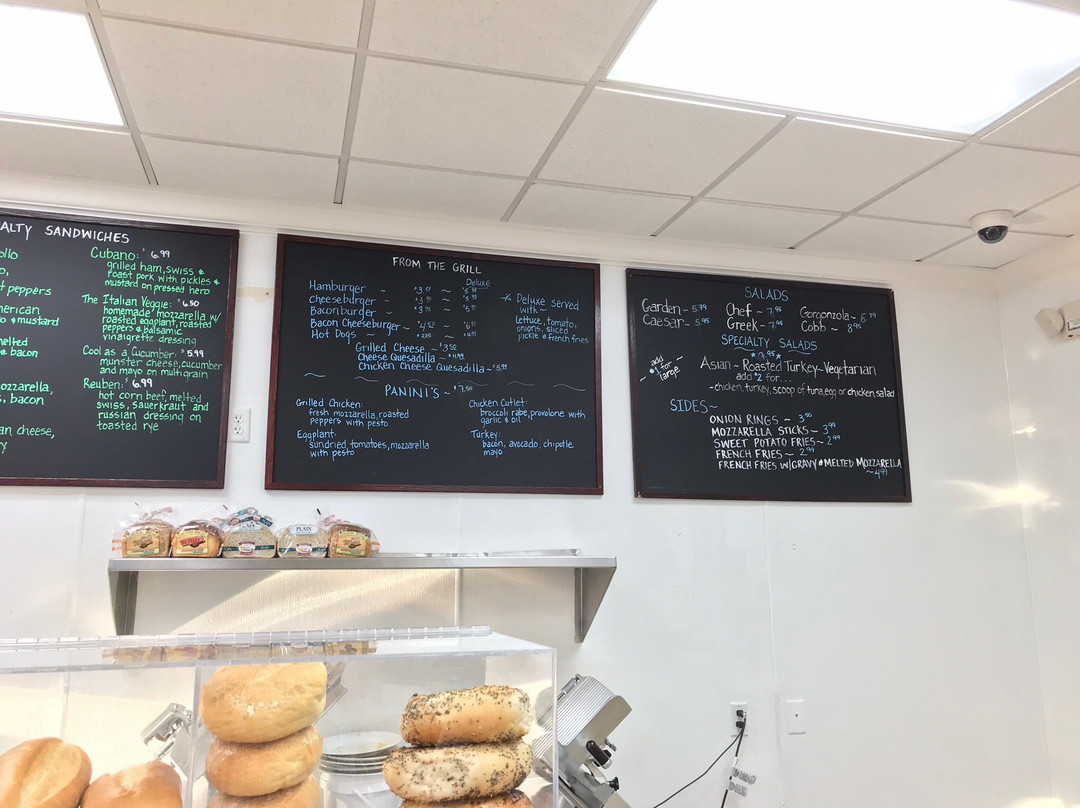 ALTY SANDWICHES
ollo
o,
t peppers
nerican
o & mustard
nelted
& bacon
ozzarella,
s, bacon
an cheese,
y
Cubano: $6.99
grilled ham, swiss &
roast pork with pickles &
mustard on pressed hero
The Italian Veggie: $6.50
homemade mozzarella w/
roasted eggplant, roasted
peppers & balsamic
vinaigrette dressing
Cool as a Cucumber: $5.99
munster cheese, cucumber
and mayo on multigrain
Reuben: $6.99
hot corn beef, melted
swiss, sauerkraut and
russian dressing on
toasted rye
FROM THE GRILL
Deluxe
Hamburger -
cheeseburger -
Bacon burger -
Bacon Cheeseburger -
Hot Dogs -
Grilled Cheese ~ $3.50
Cheese Quesadilla ~ $4.99
Chicken Cheese Quesadilla ~ $5.99
* Deluxe served
with ~
Lettuce, tomato,
onions, sliced
pickle & french fries
PANINI'S ~ $7.50
Grilled Chicken:
fresh mozzarella, roasted
peppers with pesto
Eggplant:
sundried, tomatoes, mozzarella
with pesto
Chicken Cutlet:
broccoli rabe, provolone with
garlic & oil
Turkey:
bacon, avocado, chipotle
mayo
SALADS
Garden - 5.99
Caesar - 5.95
Chef - 7.95
Greek - 7.95
Gorgonzola - 6.99
Cobb - 8.95
SPECIALTY SALADS
* 7.95 *
add ~
$1 for
large
Asian ~ Roasted Turkey ~ Vegetarian
add $2 for...
- chicken, turkey, scoop of tuna, egg or chicken salad
SIDES ~
ONION RINGS ~ 3.50
MOZZARELLA STICKS ~ 3.99
SWEET POTATO FRIES ~ 2.99
FRENCH FRIES ~ 2.99
FRENCH FRIES W/ GRAVY & MELTED MOZZARELLA
~ 4.99
PLAIN